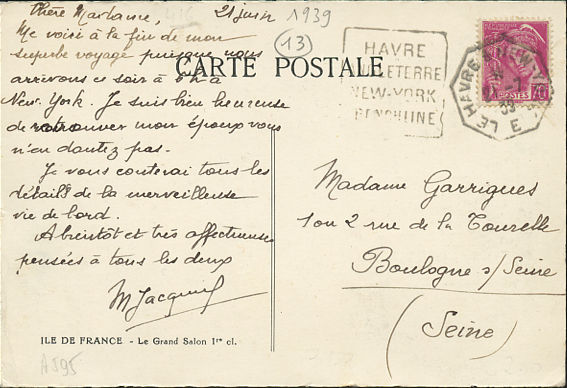 21 juin 1939
Chère Madame,
Me voici à la fin de mon
superbe voyage puisque nous
arrivons ce soir à 6h à
New-York. Je suis bien heureuse
de retrouver mon époux vous
n'en doutez pas-
Je vous conterai tous les
détails de la merveilleuse
vie de bord.
A bientôt et très affectueuses
pensées à tous les deux
M Jacquel
13
CARTE POSTALE
HAVRE
ANGLETERRE
NEW-YORK
LE HAVRE A NEW-YORK
39
E
POSTES
Madame Garrigues
1 ou 2 rue de la Tourelle
Boulogne s/Seine
(Seine)
ILE DE FRANCE - Le Grand Salon 1re cl.
A595